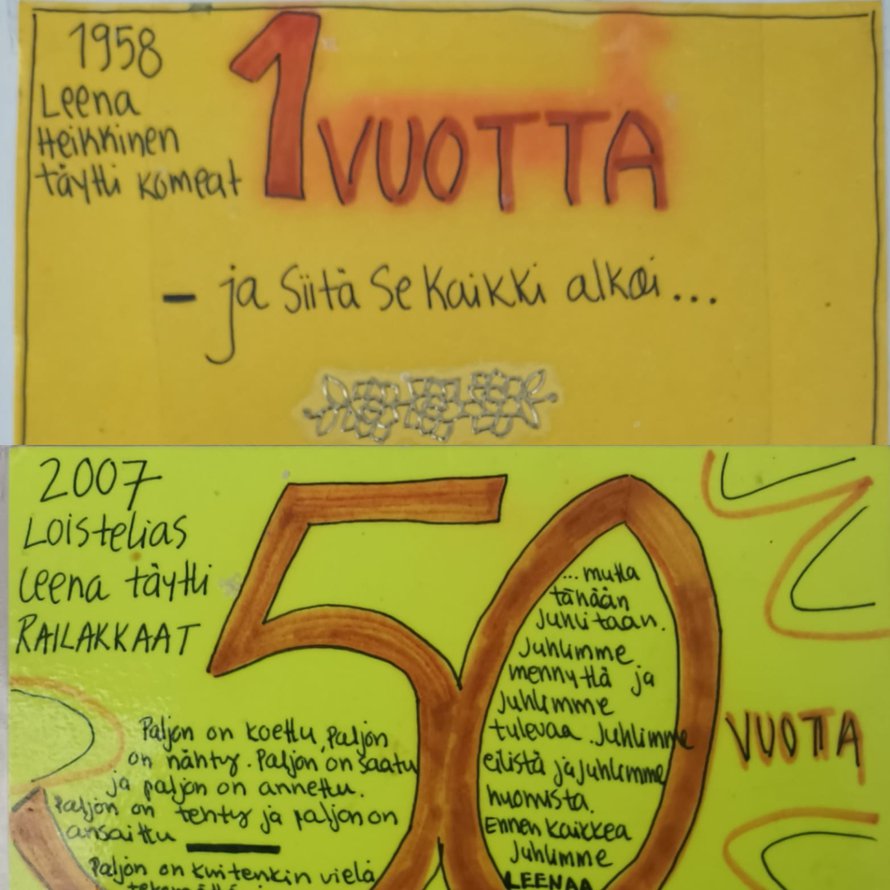 1958
Leena
Heikkinen
täytti komeat
1 VUOTTA
- ja siitä se kaikki alkoi...
2007
Loistelias
Leena täytti
RAILAKKAAT
50
VUOTTA
Paljon on koettu, paljon
on nähty. Paljon on saatu
ja paljon on annettu.
Paljon on tehty ja paljon on
ansaittu
Paljon on kuitenkin vielä
... mutta
tänään
juhlitaan.
Juhlimme
mennyttä ja
juhlimme
tulevaa. Juhlimme
eilistä ja juhlimme
huomista.
Ennen kaikkea
juhlimme
LEENAA